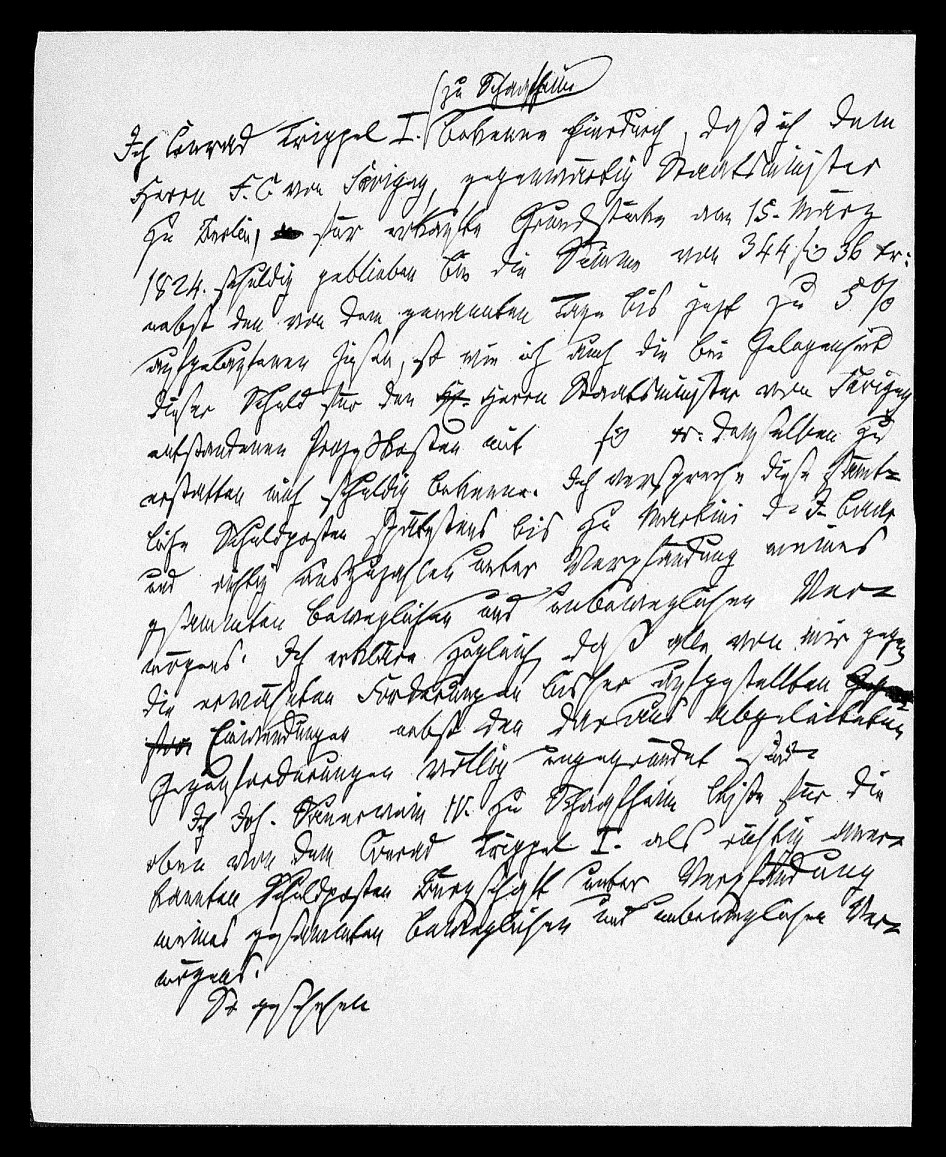 zu Schaafheim
Ich Conrad Trippel I. bekenne hierdurch, daß ich dem
Herrn F. C. von Savigny, gegenwärtig Staatsminister
zu Berlin, für erkaufte Grundstücke vom 15. März
1824. schuldig geblieben bin die Summe von 344 fl 36 kr:
nebst den von dem genannten Tage bis jetzt zu 5 %
aufgelaufenen Zinsen, so wie ich auch die bei Gelegenheit
dieser Schuld für den H. Herrn Staatsminister von Savigny
entstandenen Prozeßkosten mit fl kr: demselben zu
erstatten mich schuldig bekenne. Ich verspreche diese sämt=
liche Schuldposten spätestens bis zu Martini d. J. baar
und richtig auszuzahlen unter Verpfändung meines
gesammten beweglichen und unbeweglichen Ver=
mögens. Ich erkläre zugleich daß alle von mir gegen
die erwähnten Forderungen bisher aufgestellten
Einwendungen nebst den daraus abgeleiteten
Gegenforderungen völlig ungegründet sind.
Ich Joh. Sauerwein IV. zu Schaafheim leiste für die
oben von dem Conrad Trippel I. als richtig aner=
kannten Schuldposten Bürgschaft unter Verpfändung
meines gesammten beweglichen und unbeweglichen Ver=
mögens.
So geschehen